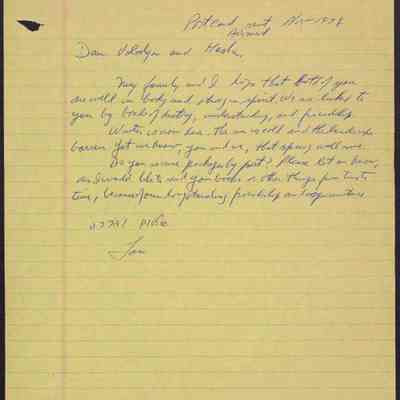 Portland, Nov 1978
Dear Volodya and Masha,
My family and I hope that both of you
are well in body and strong in spirit. We are linked to
you by bonds of history, understanding, and friendship.
Winter is now here. The air is cold and the landscape
barren. Yet we know, you and we, that spring will come.
Do you receive packages by post? Please let us know,
as I would like to send you books or other things from time to
time, because of our longstanding friendship and